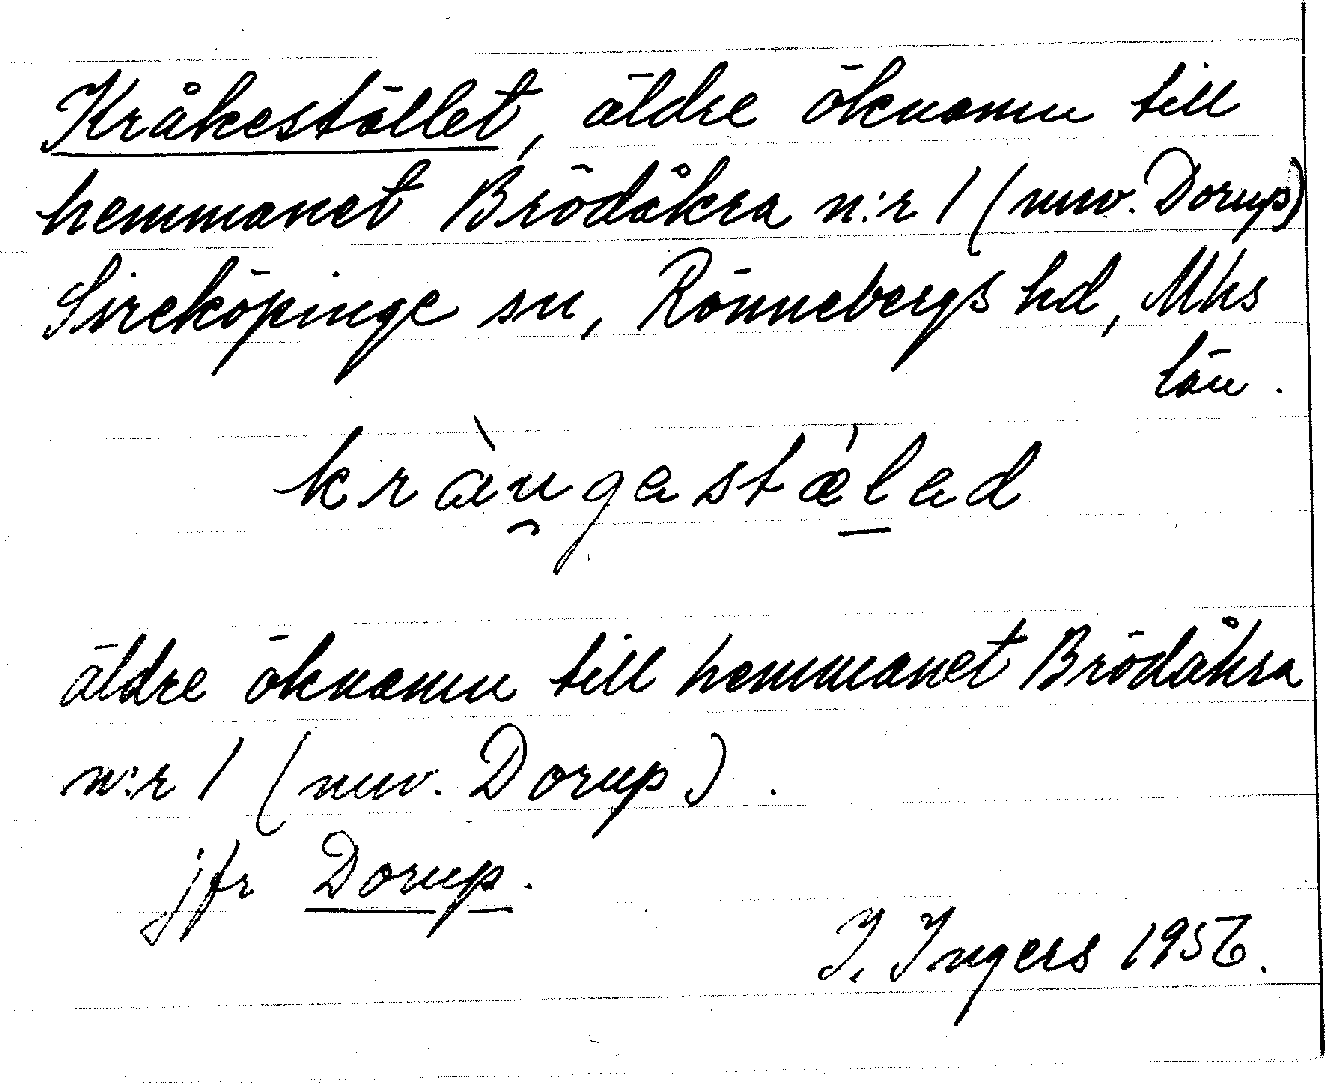 Kråkestället, äldre öknamn till
hemmanet Brödåkra n:r 1 (nuv. Dorup)
Sireköpinge sn, Rönnebergs hd, Mhs
län.
kràu̯gastǽlad
äldre öknamn till hemmanet Brödåkra
n:r 1 (nuv. Dorup).
jfr Dorup.
I. Ingers 1956.